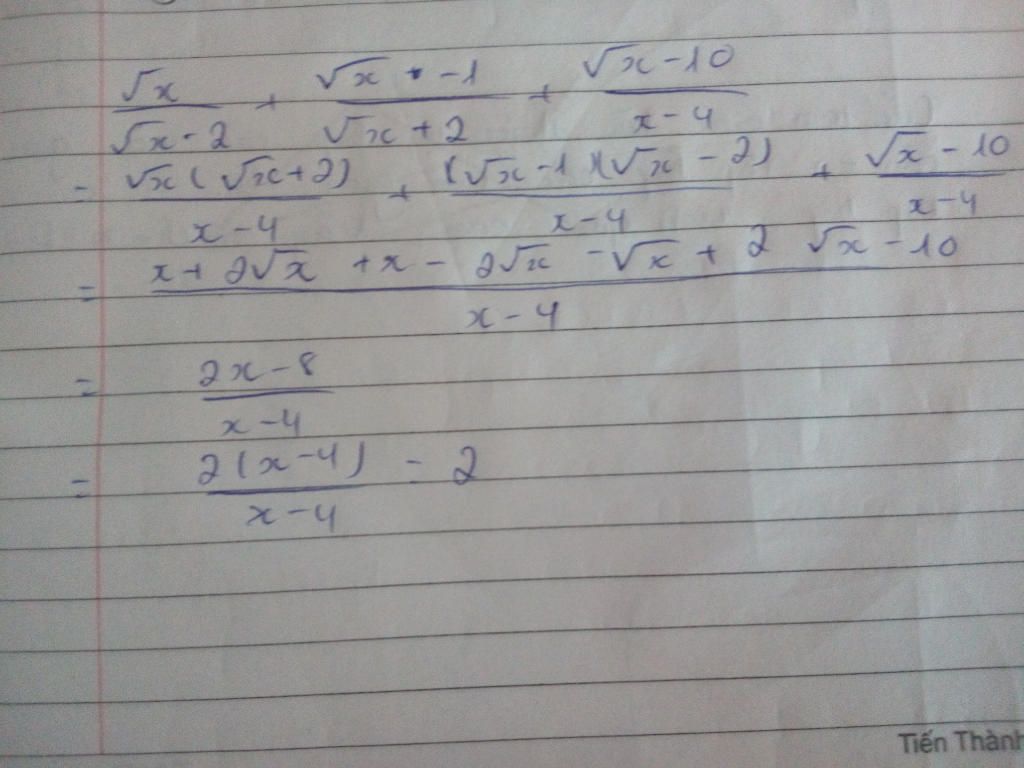 √x/(√x - 2) + (√x - 1)/(√x + 2) + (√x - 10)/(x - 4)
= √x(√x + 2)/(x - 4) + (√x - 1)(√x - 2)/(x - 4) + (√x - 10)/(x - 4)
= (x + 2√x + x - 2√x - √x + 2 √x - 10)/(x - 4)
= (2x - 8)/(x - 4)
= 2(x - 4)/(x - 4) = 2
Tiến Thành